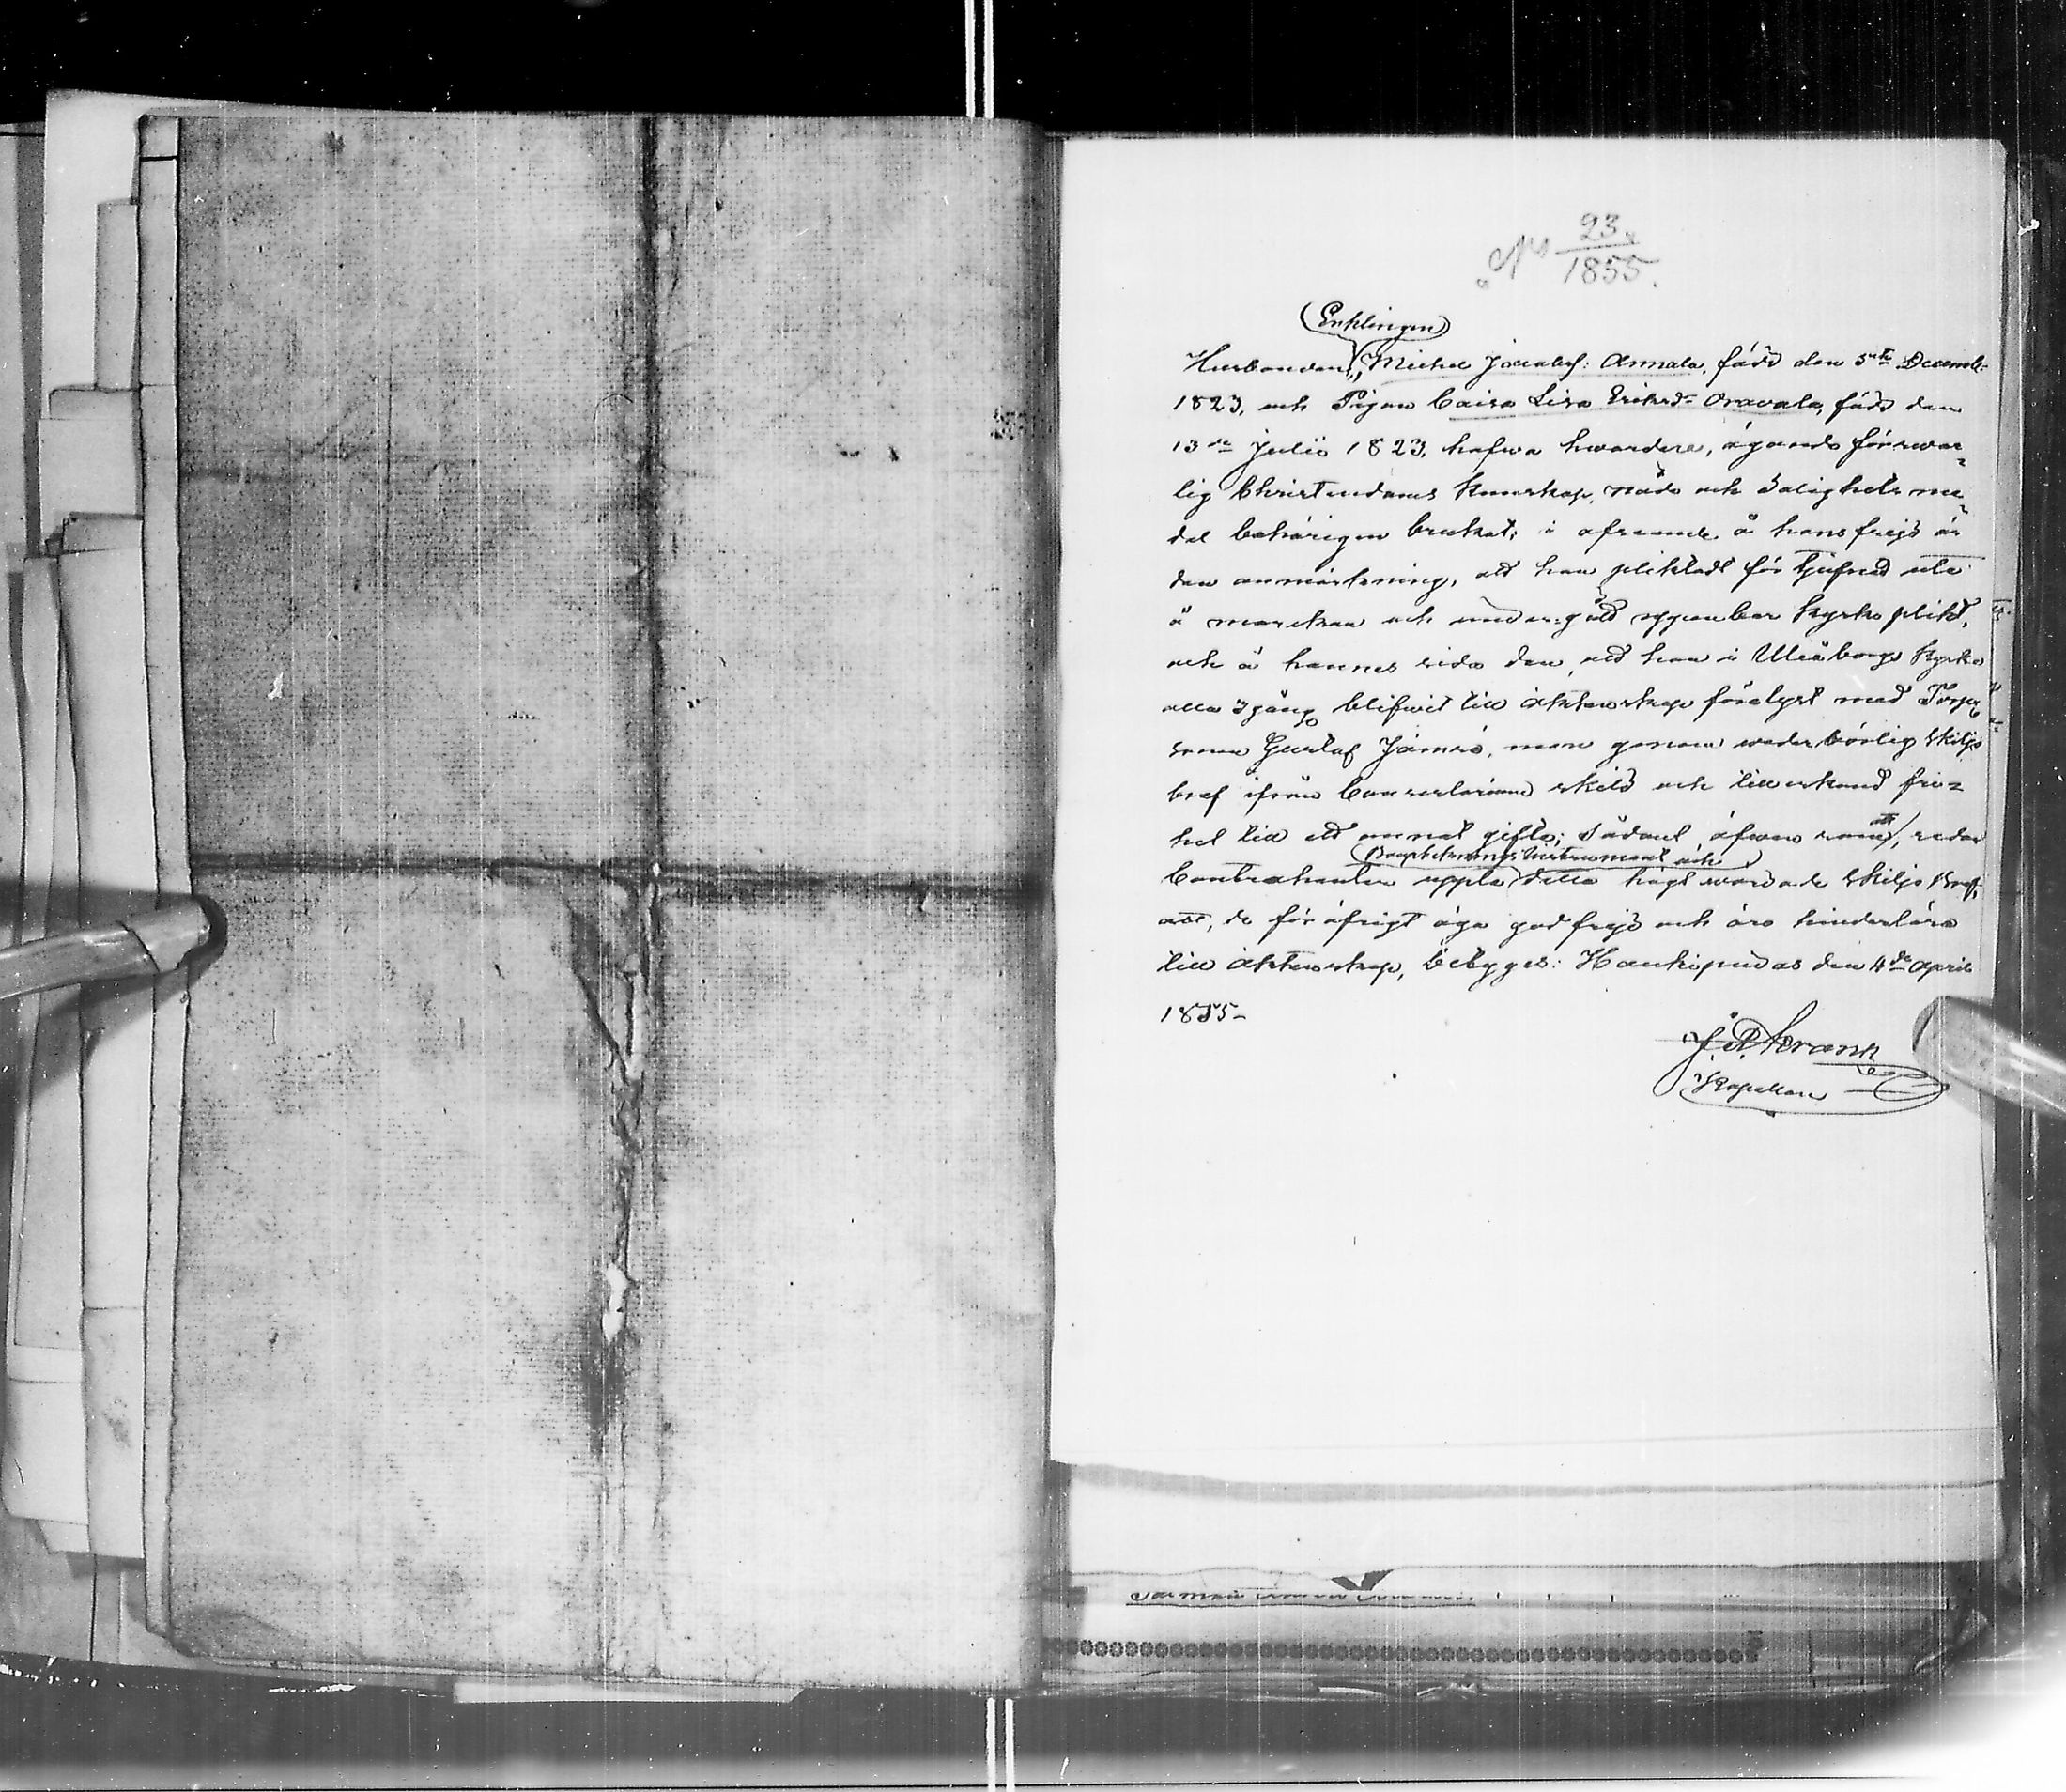 No 23.
1855.
(Enklingen)
Husbonden, Michel Jacobss: Annala, född den 5te Decemb:
1823, och Pigan Caisa Lisa Eriksd:r Oravala, född den
13de Julii 1823, hafva hvardera, ägande försvar-
lig Christendoms kunskap, nåde och Salighets me-
del behörigen brukat; i afseende å hans frejd är
den anmärkning, att han pliktadt för tjufnad
å marcknad och undergått uppenbar Kyrko plikt,
och å hennes sida den, att hon i Uleåborgs Kyrka
alla 3 gång blifvit till äktenskap förelyst med
Gustaf Jämsä, men genom vederbörlig Skiljo
bref ifrån Consistorium skild och tillerkänd fri-
het till ett annat gifte; Sådant äfven som att, sedan
(Bouptecknings Instrument och)
Contrahenter uppte detta högt warande Skiljo Bref,
att, de för öfrigt äga god frejd och äro hinderlösa
till äktenskap, betygas: Haukipudas den 4de April
1855-
J. A. Krank
Kapellan